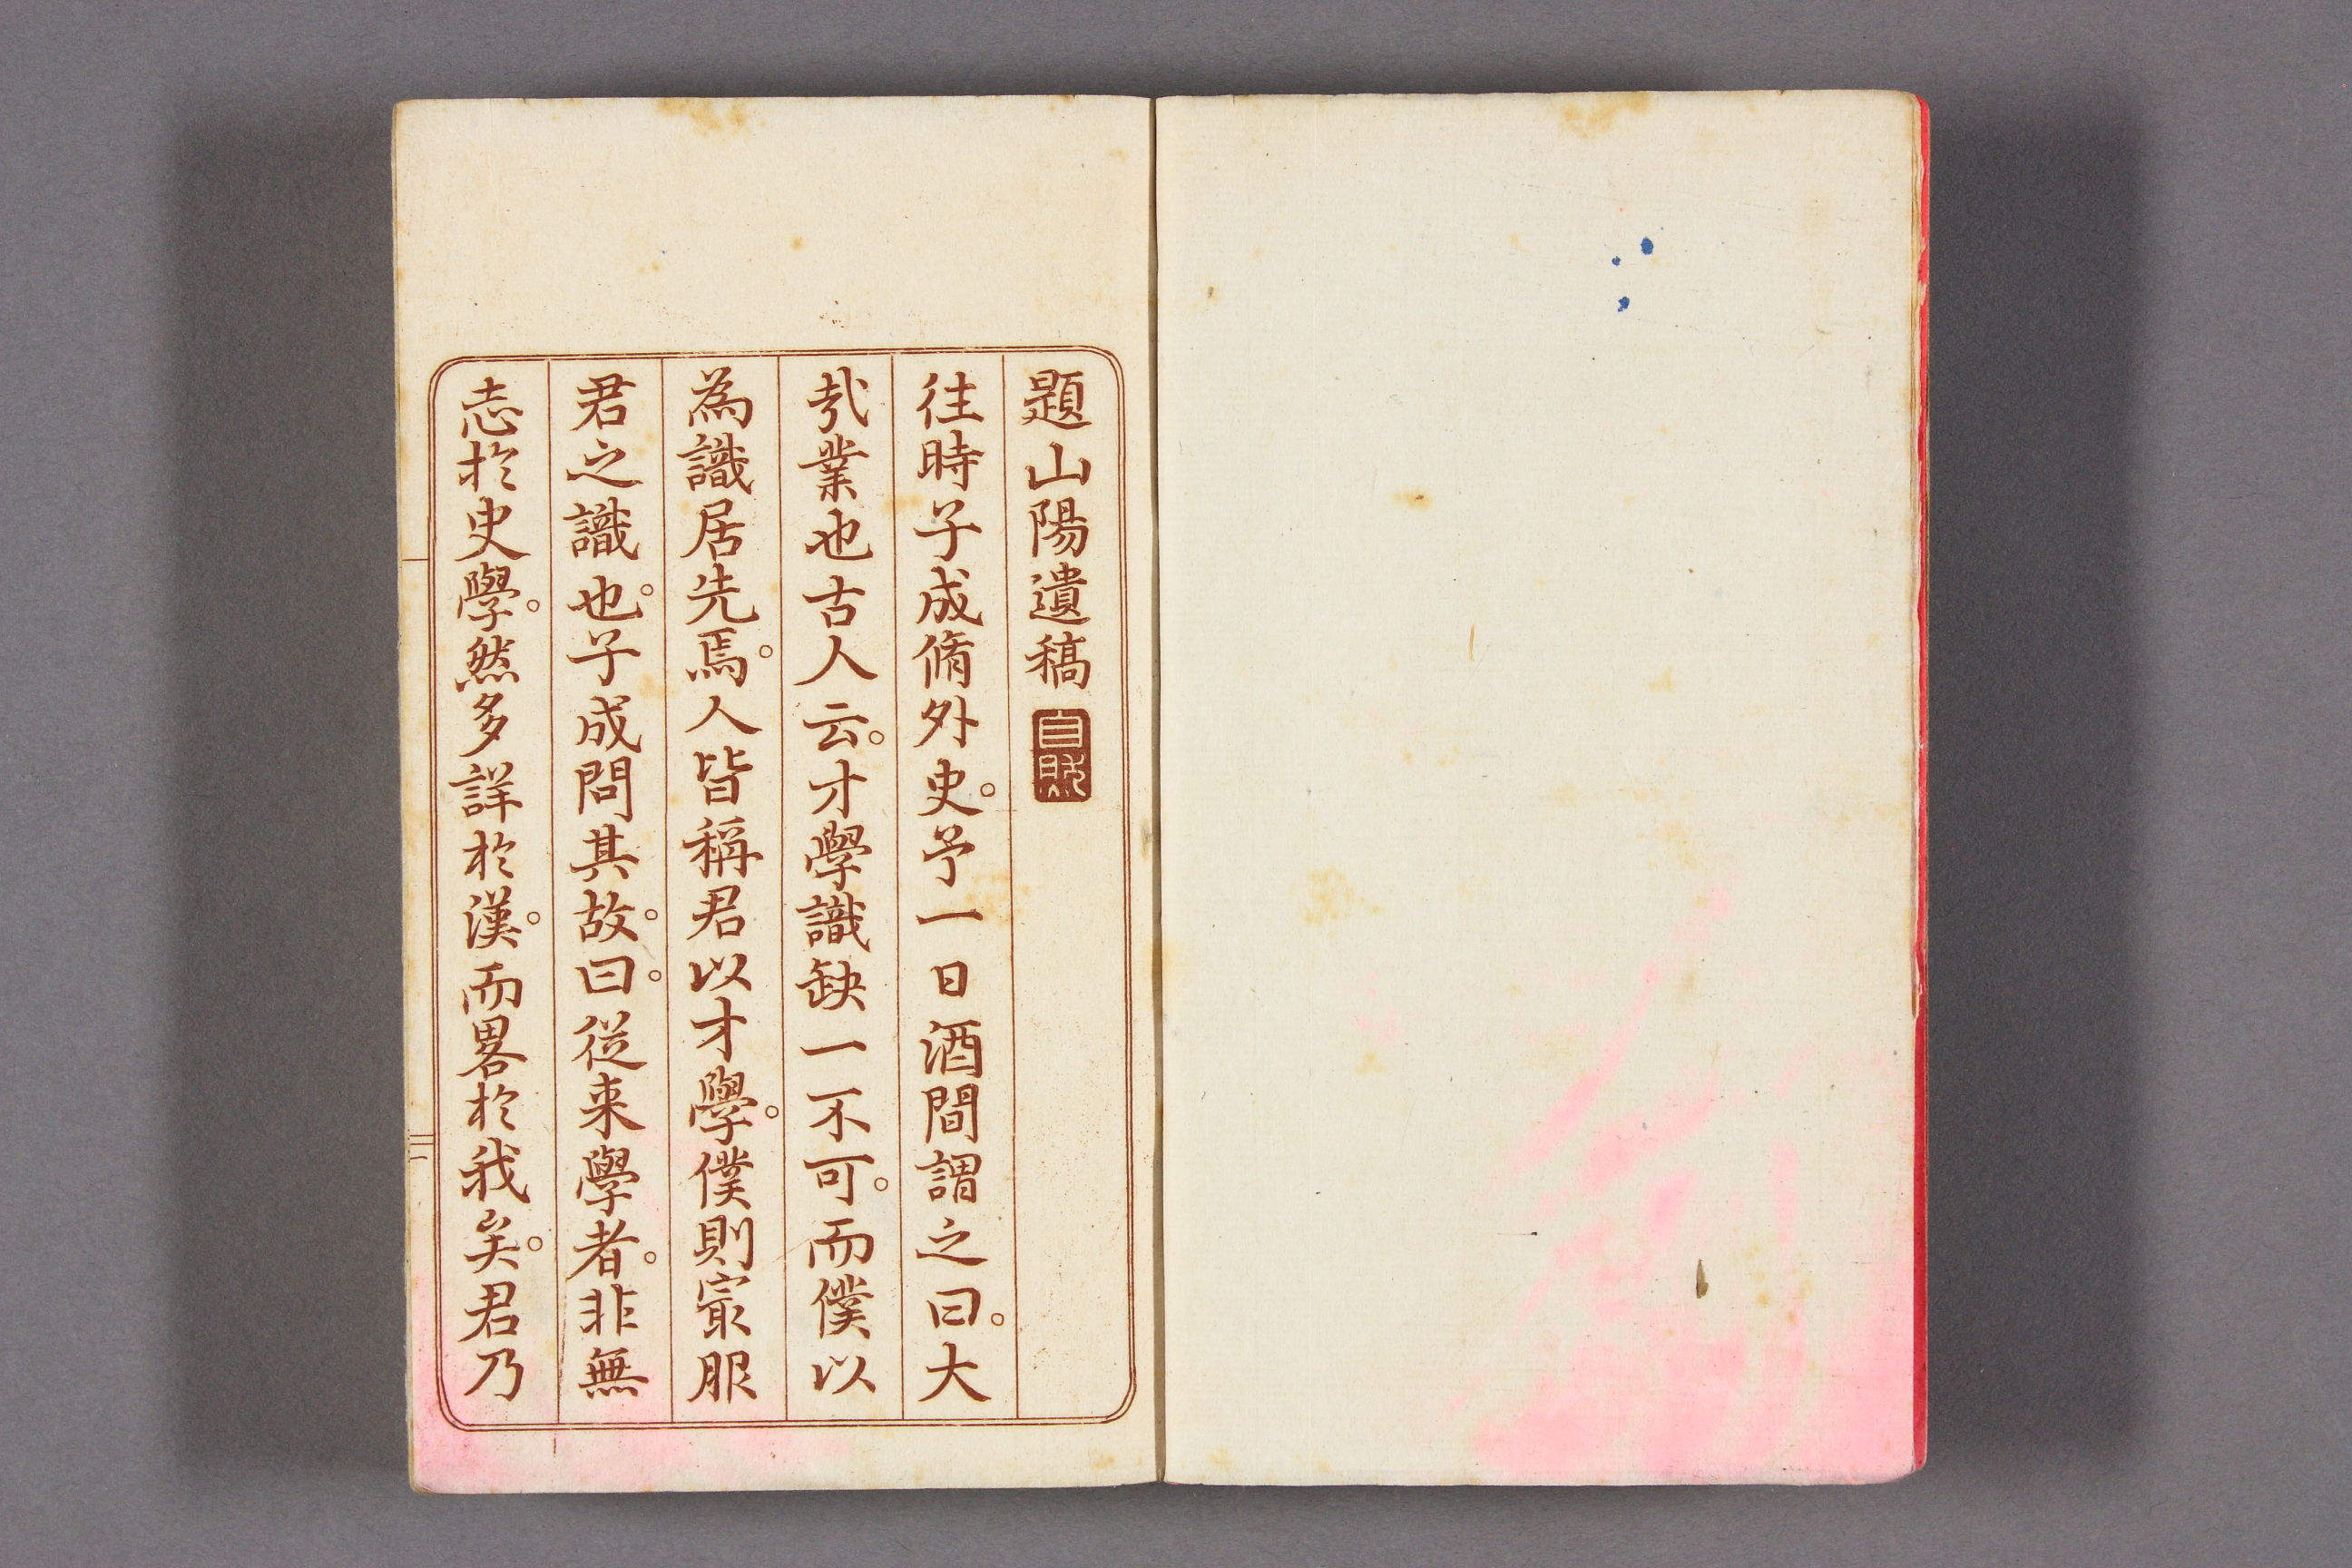 題山陽遺稿
往時子成脩外史。予一日酒間謂之曰。大
㢤業也古人云。才學識缺一不可。而僕以
為識居先焉。人皆稱君以才學。僕則㝡服
君之識也。子成問其故。曰。從来學者。非無
志於史學。然多詳於漢。而畧於我矣。君乃